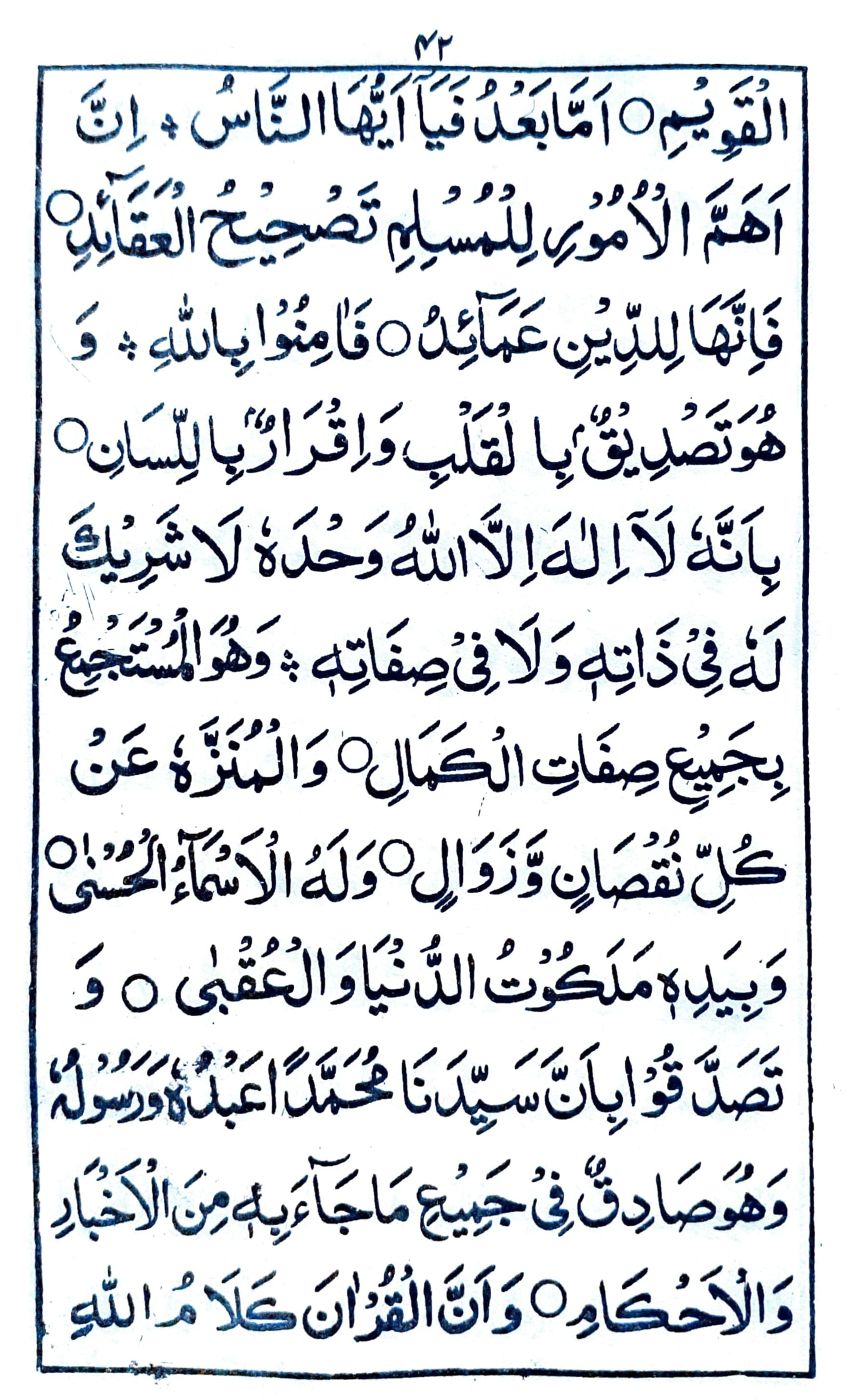 ٤٢
الْقَوِيْمِ○ اَمَّا بَعْدُ فَيَآ اَيُّهَا النَّاسُ ؞ اِنَّ
اَهَمَّ الْاُمُوْرِ لِلْمُسْلِمِ تَصْحِيْحُ الْعَقَآئِدِ○
فَاِنَّهَا لِلدِّيْنِ عَمَآئِدُ○ فَاٰمِنُوْا بِاللّٰهِ ؞ وَ
هُوَ تَصْدِيْقٌۢ بِالْقَلْبِ وَاِقْرَارٌۢ بِاللِّسَانِ○
بِاَنَّهٗ لَآ اِلٰهَ اِلَّا اللّٰهُ وَحْدَهٗ لَا شَرِيْكَ
لَهٗ فِيْ ذَاتِهٖ وَلَا فِيْ صِفَاتِهٖ ؞ وَهُوَ الْمُسْتَجْمِعُ
بِجَمِيْعِ صِفَاتِ الْكَمَالِ○ وَالْمُنَزَّهُ عَنْ
كُلِّ نُقْصَانٍ وَّزَوَالٍ○ وَلَهُ الْاَسْمَآءُ الْحُسْنٰى○
وَبِيَدِهٖ مَلَكُوْتُ الدُّنْيَا وَالْعُقْبٰى ○ وَ
تَصَدَّقُوْا بِاَنَّ سَيِّدَنَا مُحَمَّدًا عَبْدُهٗ وَرَسُوْلُهٗ
وَهُوَ صَادِقٌ فِيْ جَمِيْعِ مَا جَآءَ بِهٖ مِنَ الْاَخْبَارِ
وَالْاَحْكَامِ○ وَاَنَّ الْقُرْاٰنَ كَلَامُ اللّٰهِ